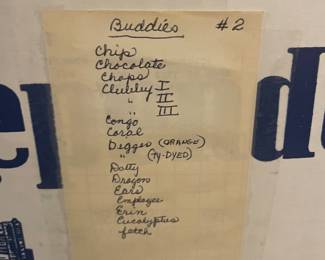 Buddies #2
Chip
Chocolate
Chops
Clubby I
" II
" III
Congo
Coral
Digger (ORANGE)
" (TY-DYED)
Dotty
Dragon
Ears
Employee
Erin
Eucalyptus
fetch